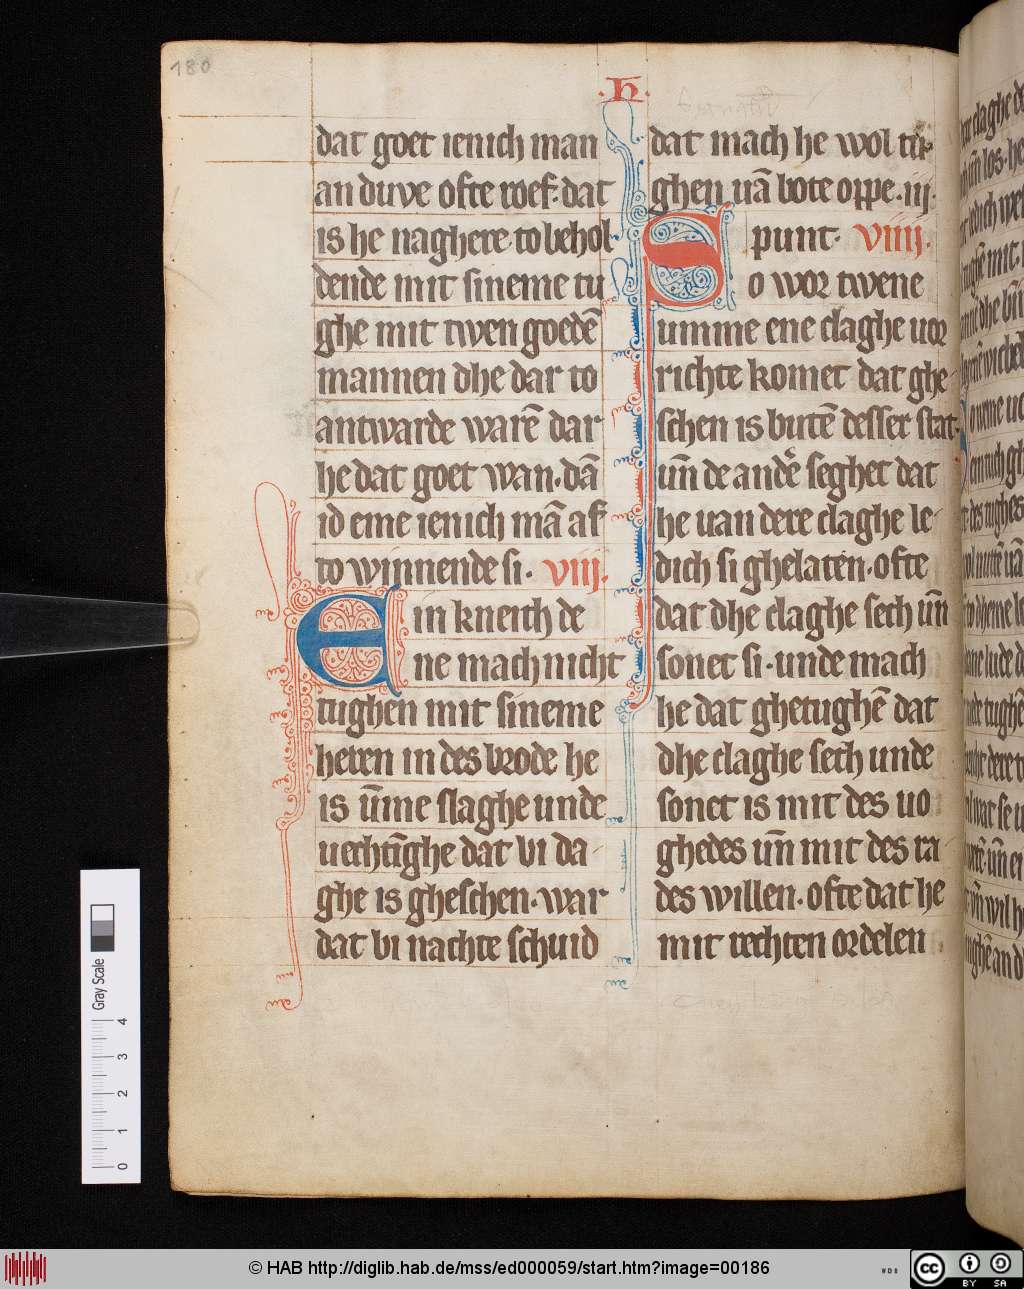 180
·h·
dat goet ienich man
an duve ofte roef· dat
is he naghere to behol
dende mit sineme tu
ghe mit twen goedē
mannen dhe dar to
antwarde warē dar
he dat goet wan· dā
id eme ienich mā af
to winnende si· viij·
Ein knecht de
ne mach nicht
tughen mit sineme
heren in des brode he
is ūme slaghe unde
uechtīghe dat bi da
ghe is gheschen· war
dat bi nachte schuid
dat mach he wol tu
ghen uā bote oppe· iij·
punt· viiij·
So wor twene
umme ene claghe uor
richte komet dat ghe
schen is butē desser stat·
uñ de andere seghet dat
he uan dere claghe le
dich si ghelaten· ofte
dat dhe claghe sech uñ
sonet si· unde mach
he dat ghetughē dat
dhe claghe sech unde
sonet is mit des uo
ghedes uñ mit des ra
des willen· ofte dat he
mit rechten ordelen
Gray Scale
0 1 2 3 4
© HAB http://diglib.hab.de/mss/ed000059/start.htm?image=00186
WDB
cc BY SA